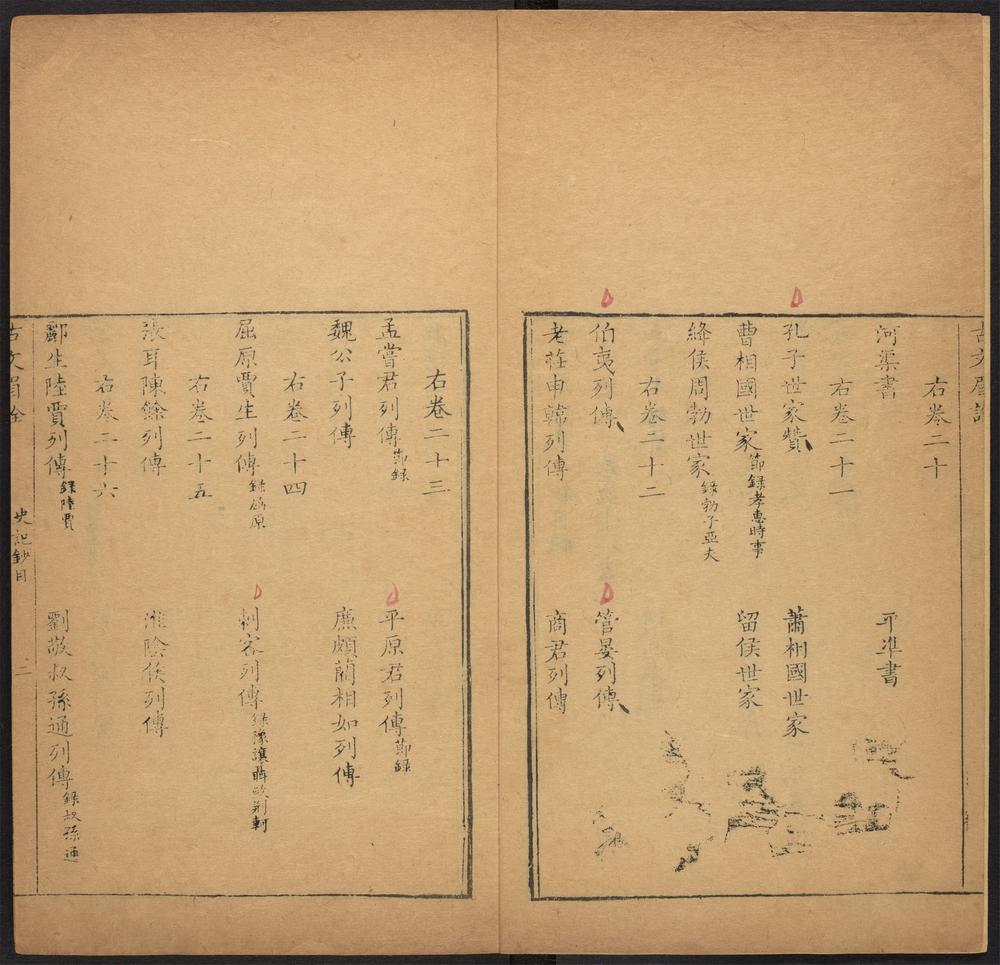 古文眉詮
右卷二十
河渠書 平準書
右卷二十一
孔子世家贊 蕭相國世家
曹相國世家節錄孝惠時事 留侯世家
絳侯周勃世家錄勃子亞夫
右卷二十二
伯夷列傳 管晏列傳
老莊申韓列傳 商君列傳
右卷二十三
孟嘗君列傳節錄 平原君列傳節錄
魏公子列傳 廉頗藺相如列傳
右卷二十四
屈原賈生列傳錄屈原 刺客列傳錄豫讓聶政荊軻
右卷二十五
張耳陳餘列傳 淮陰侯列傳
右卷二十六
酈生陸賈列傳錄陸賈 劉敬叔孫通列傳錄叔孫通
古文眉詮 史記鈔目 二